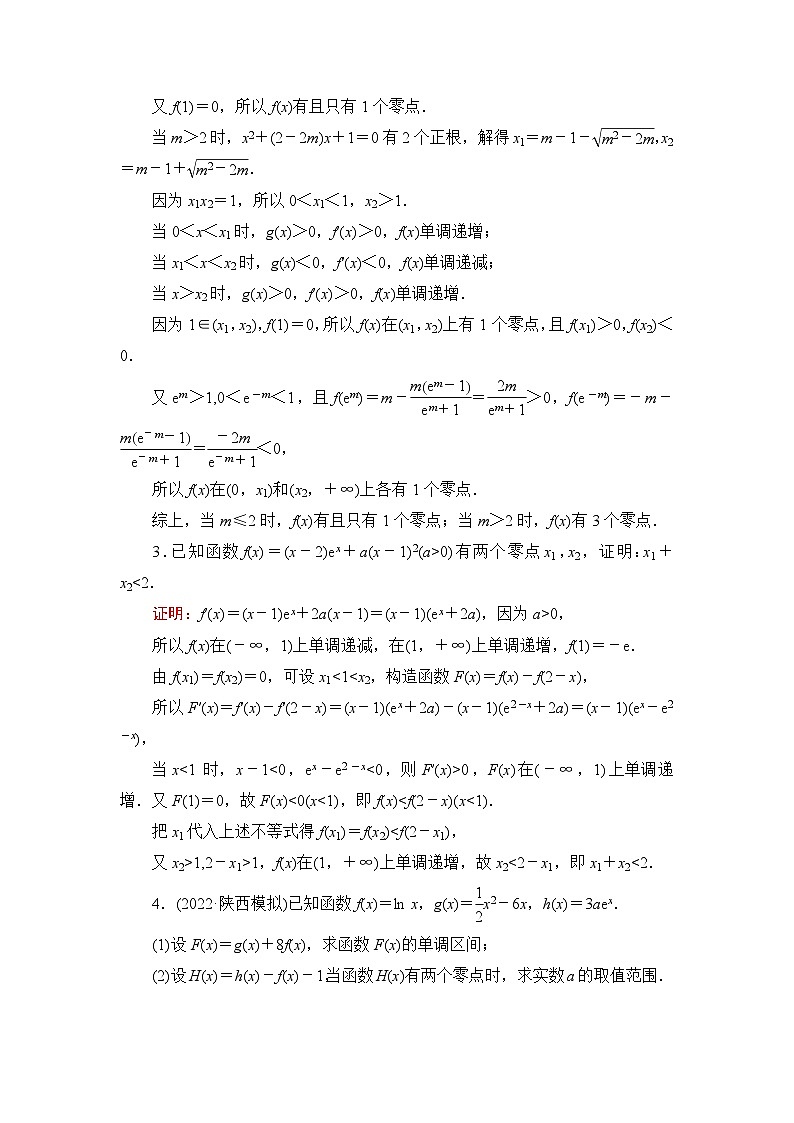 又 f(1)=0,所以 f(x)有且只有 1 个零点.
当 m>2 时,x²+(2-2m)x+1=0 有 2 个正根,解得 x₁=m-1-√(m²-2m),x₂
=m-1+√(m²-2m).
因为 x₁x₂=1,所以 0<x₁<1,x₂>1.
当 0<x<x₁ 时,g(x)>0,f′(x)>0,f(x)单调递增;
当 x₁<x<x₂ 时,g(x)<0,f′(x)<0,f(x)单调递减;
当 x>x₂ 时,g(x)>0,f′(x)>0,f(x)单调递增.
因为 1∈(x₁,x₂),f(1)=0,所以 f(x)在(x₁,x₂)上有 1 个零点,且 f(x₁)>0,f(x₂)<
0.
又 eᵐ>1,0<e⁻ᵐ<1,且 f(eᵐ)=m-m(eᵐ-1)/(eᵐ+1)=2m/(eᵐ+1)>0,f(e⁻ᵐ)=-m-
m(e⁻ᵐ-1)/(e⁻ᵐ+1)=-2m/(e⁻ᵐ+1)<0,
所以 f(x)在(0,x₁)和(x₂,+∞)上各有 1 个零点.
综上,当 m≤2 时,f(x)有且只有 1 个零点;当 m>2 时,f(x)有 3 个零点.
3.已知函数 f(x)=(x-2)eˣ+a(x-1)²(a>0)有两个零点 x₁,x₂,证明:x₁+
x₂<2.
证明:f′(x)=(x-1)eˣ+2a(x-1)=(x-1)(eˣ+2a),因为 a>0,
所以 f(x)在(-∞,1)上单调递减,在(1,+∞)上单调递增,f(1)=-e.
由 f(x₁)=f(x₂)=0,可设 x₁<1<x₂,构造函数 F(x)=f(x)-f(2-x),
所以 F′(x)=f′(x)-f′(2-x)=(x-1)(eˣ+2a)-(x-1)(e²⁻ˣ+2a)=(x-1)(eˣ-e²
⁻ˣ),
当 x<1 时,x-1<0,eˣ-e²⁻ˣ<0,则 F′(x)>0,F(x)在(-∞,1)上单调递
增.又 F(1)=0,故 F(x)<0(x<1),即 f(x)<f(2-x)(x<1).
把 x₁ 代入上述不等式得 f(x₁)=f(x₂)<f(2-x₁),
又 x₂>1,2-x₁>1,f(x)在(1,+∞)上单调递增,故 x₂<2-x₁,即 x₁+x₂<2.
4.(2022·陕西模拟)已知函数 f(x)=ln x,g(x)=1/2x²-6x,h(x)=3aeˣ.
(1)设 F(x)=g(x)+8f(x),求函数 F(x)的单调区间;
(2)设 H(x)=h(x)-f(x)-1.当函数 H(x)有两个零点时,求实数 a 的取值范围.